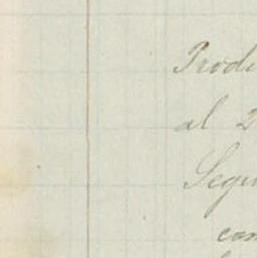 Prod
al 2
Segu
con